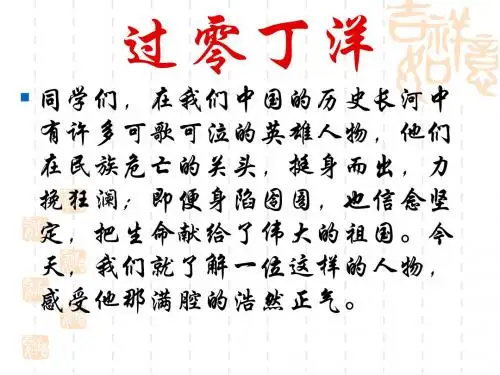 过零丁洋
吉祥
如意
同学们，在我们中国的历史长河中
有许多可歌可泣的英雄人物，他们
在民族危亡的关头，挺身而出，力
挽狂澜；即便身陷囹圄，也信念坚
定，把生命献给了伟大的祖国。今
天，我们就了解一位这样的人物，
感受他那满腔的浩然正气。